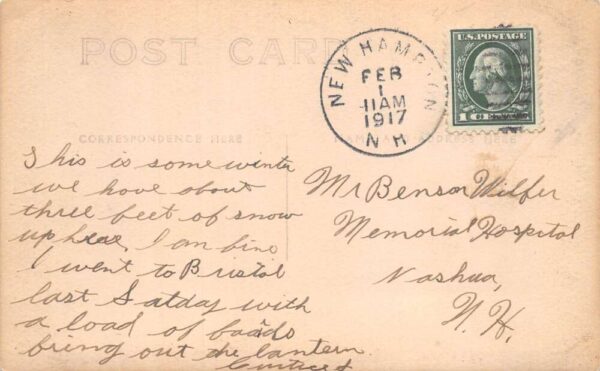 POST CARD
NEW HAMPTON
FEB
1
11AM
1917
N H
U.S. POSTAGE
1 CENT 1
CORRESPONDENCE HERE
NAME AND ADDRESS HERE
This is some winter
we have about
three feet of snow
up here, I am fine
I went to Bristol
last Satday with
a load of boards
bring out the lantern
Mr Benson Wilfer
Memorial Hospital
Nashua,
N. H.